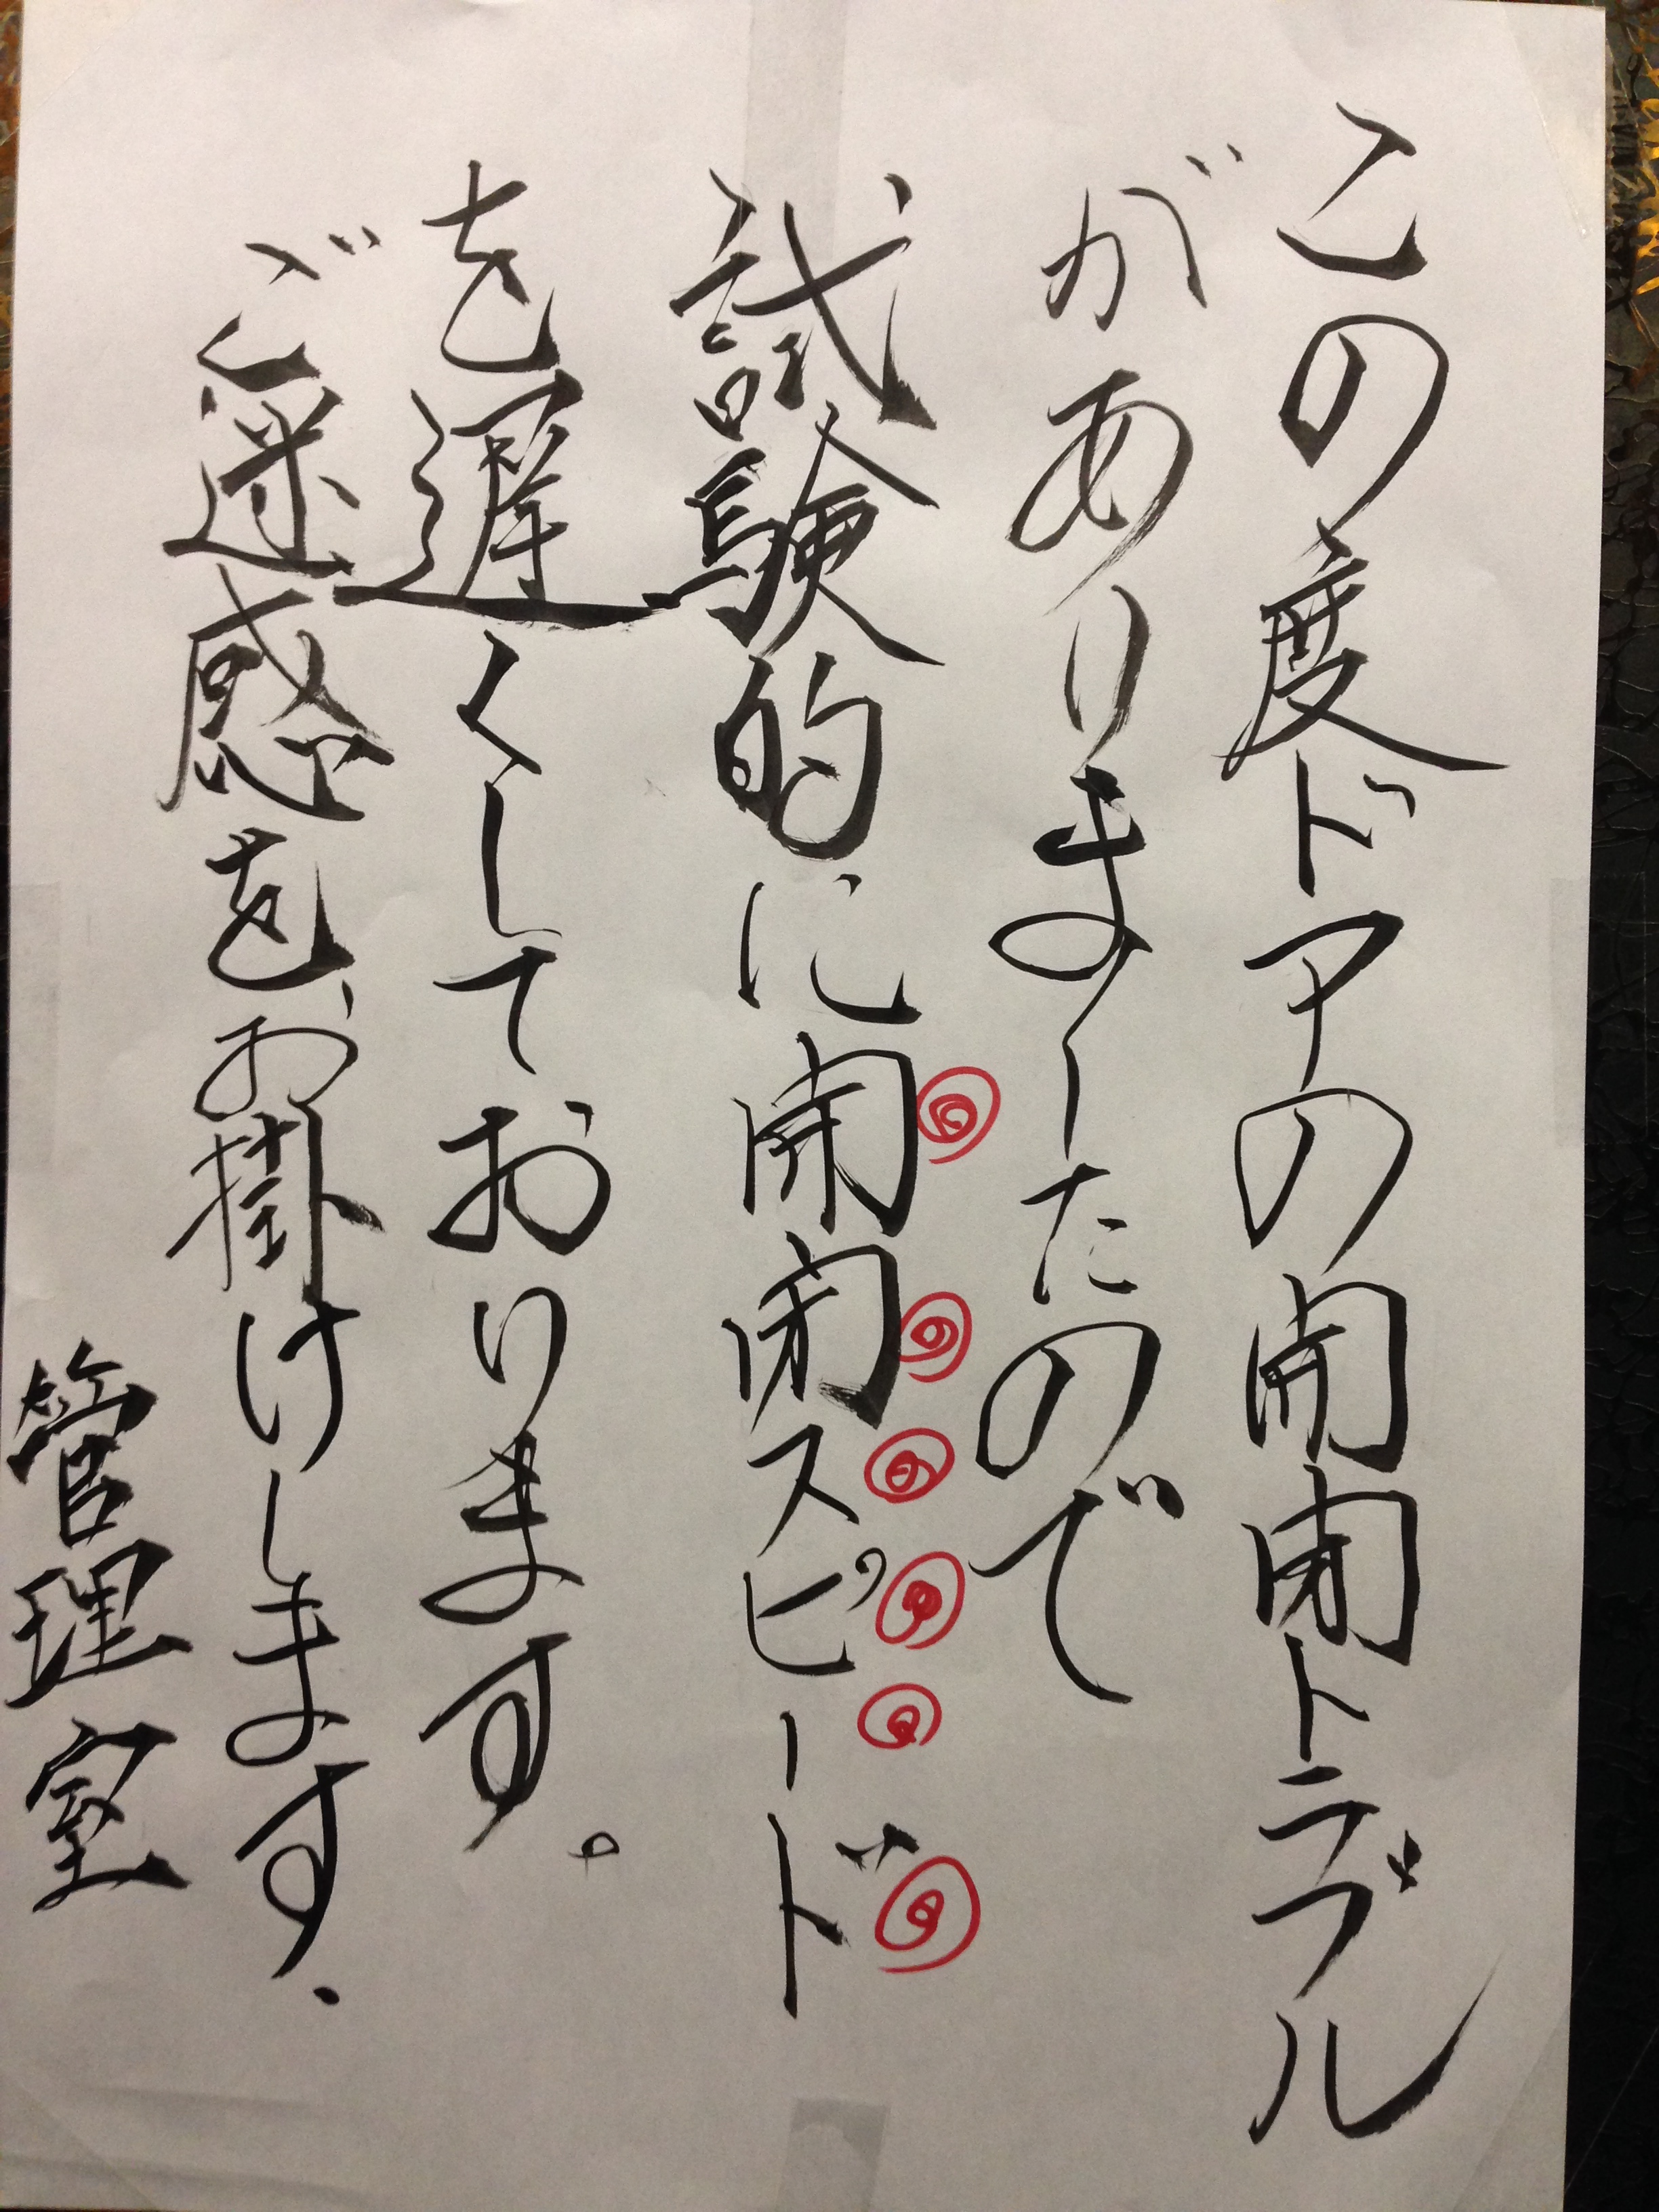 この度ドアの開閉トラブル
がありましたので
試験的に開閉スピード
を遅くしております。
ご迷惑をお掛けします.
管理室